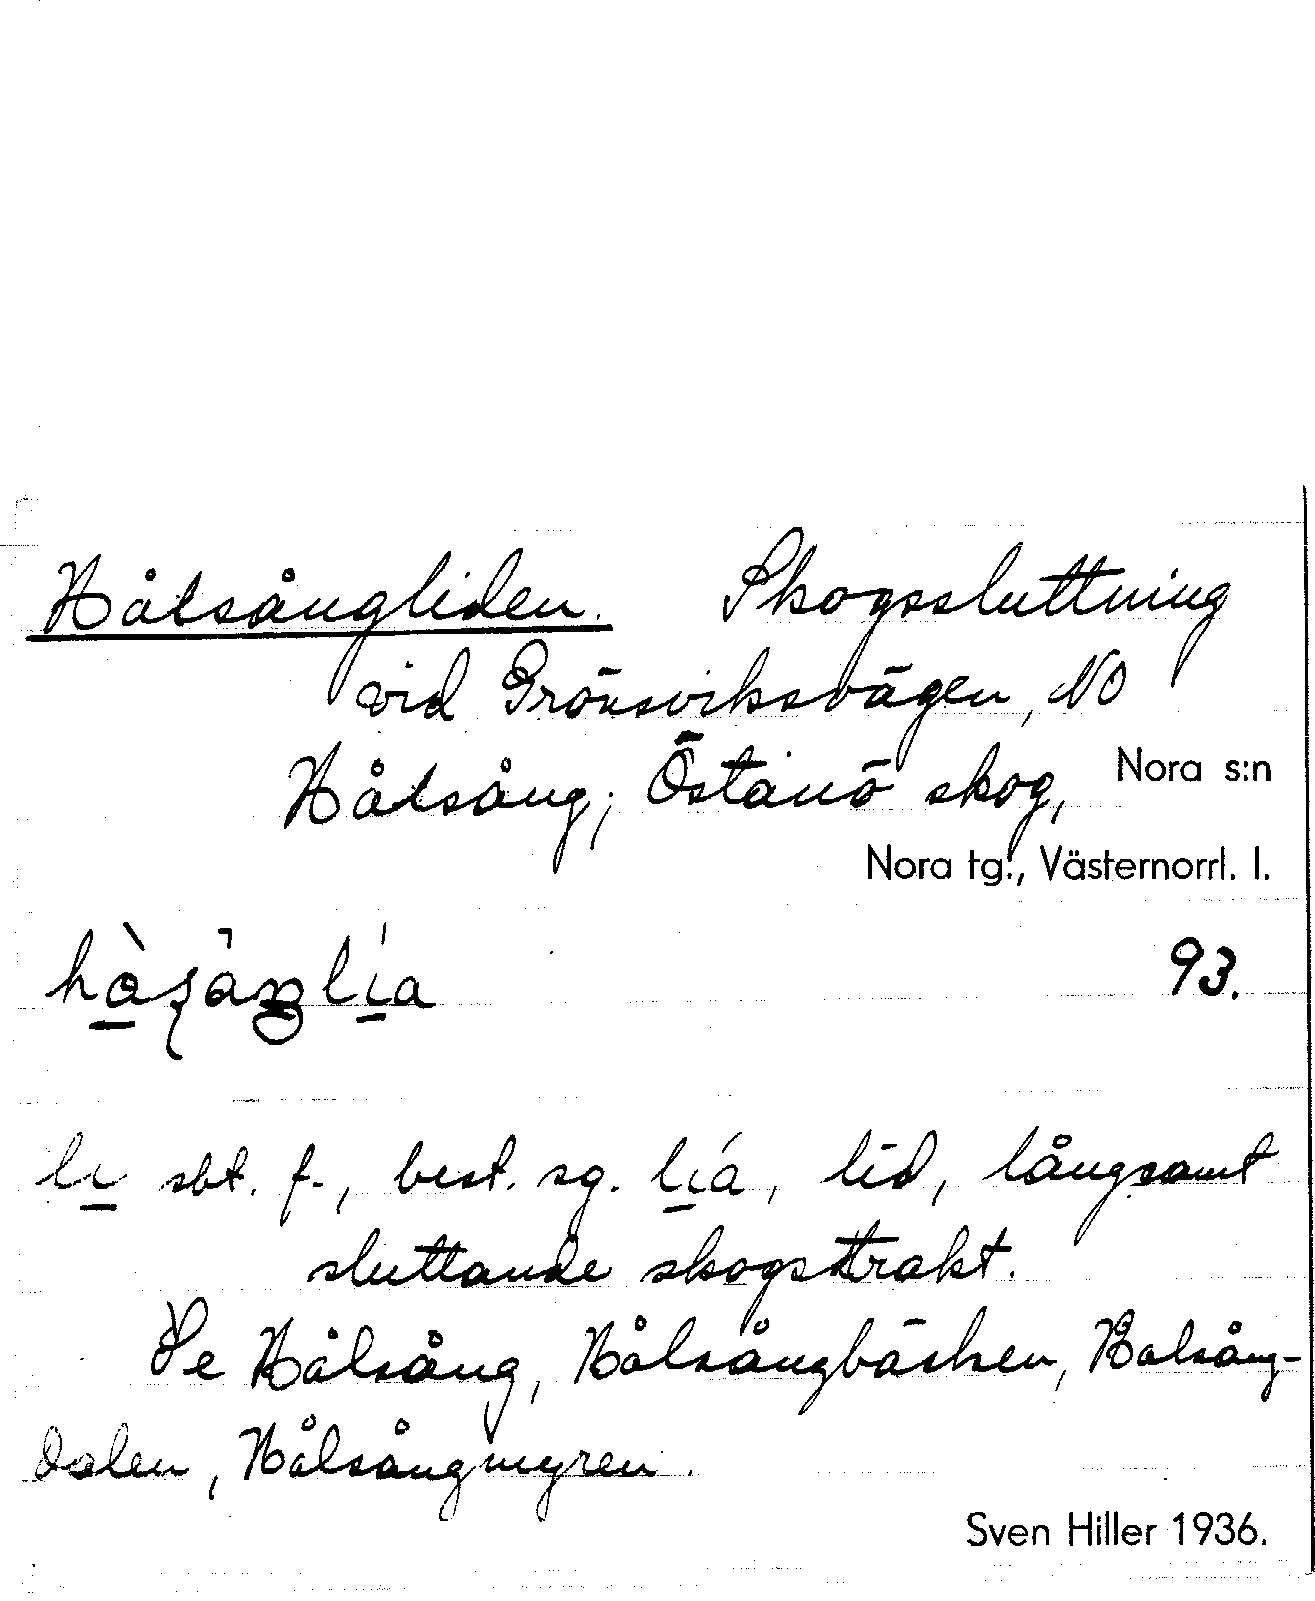 Hålsångliden. Skogssluttning
vid Grönsviksvägen, NO
Hålsång; Östanö skog, Nora s:n
Nora tg., Västernorrl. l.
93.
li sbt. f., best. sg. lia, lid, långsamt
sluttande skogstrakt.
Se Hålsång, Hålsångbäcken, Hålsång-
dalen, Hålsångmyren.
Sven Hiller 1936.